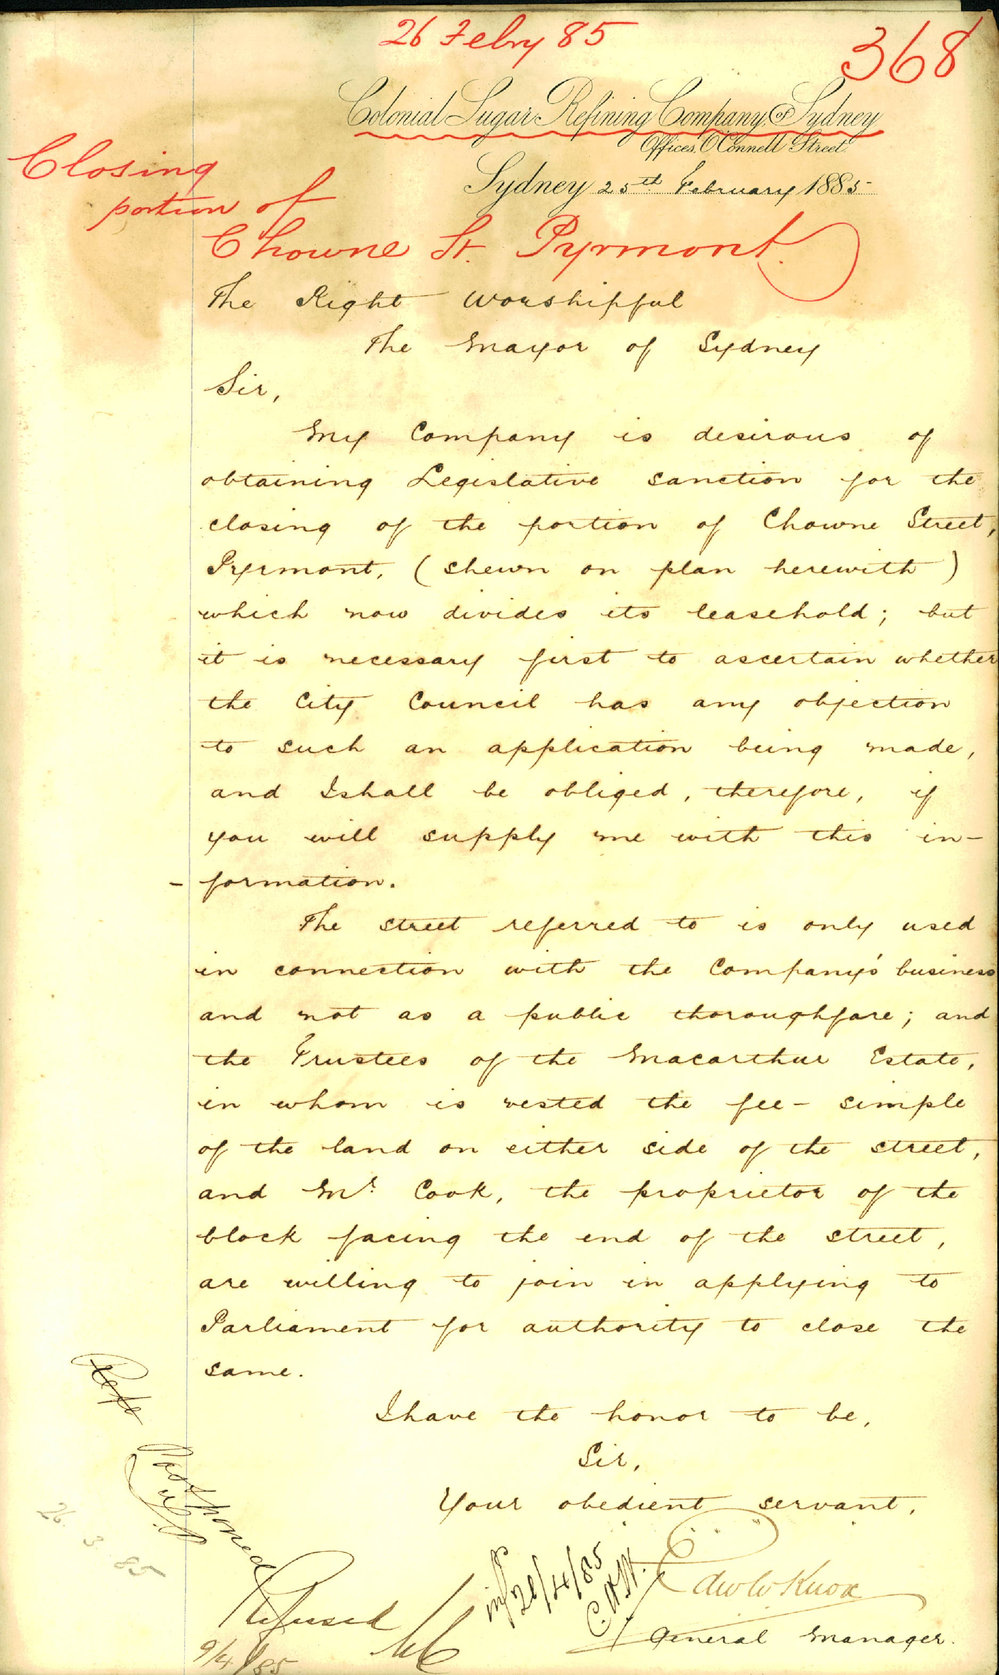 26 Febry 85
368
Colonial Sugar Refining Company of Sydney
Offices, O'Connell Street
Sydney 25th February 1885
Closing
portion of
Chowne St. Pyrmont.
The Right Worshipful
The Mayor of Sydney
Sir,
My Company is desirous of
obtaining Legislative sanction for the
closing of the portion of Chowne Street,
Pyrmont, (shewn on plan herewith)
which now divides its leasehold; but
it is necessary first to ascertain whether
the City Council has any objection
to such an application being made,
and I shall be obliged, therefore, if
you will supply me with this in-
-formation.
The street referred to is only used
in connection with the Company's business
and not as a public thoroughfare; and
the Trustees of the Macarthur Estate,
in whom is vested the fee-simple
of the land on either side of the street,
and Mr. Cook, the proprietor of the
block facing the end of the street,
are willing to join in applying to
Parliament for authority to close the
same.
I have the honor to be,
Sir,
Your obedient servant,
Edw W Knox
General Manager.
Postponed
26 3 85
Refused
9/4/85
21/4/85